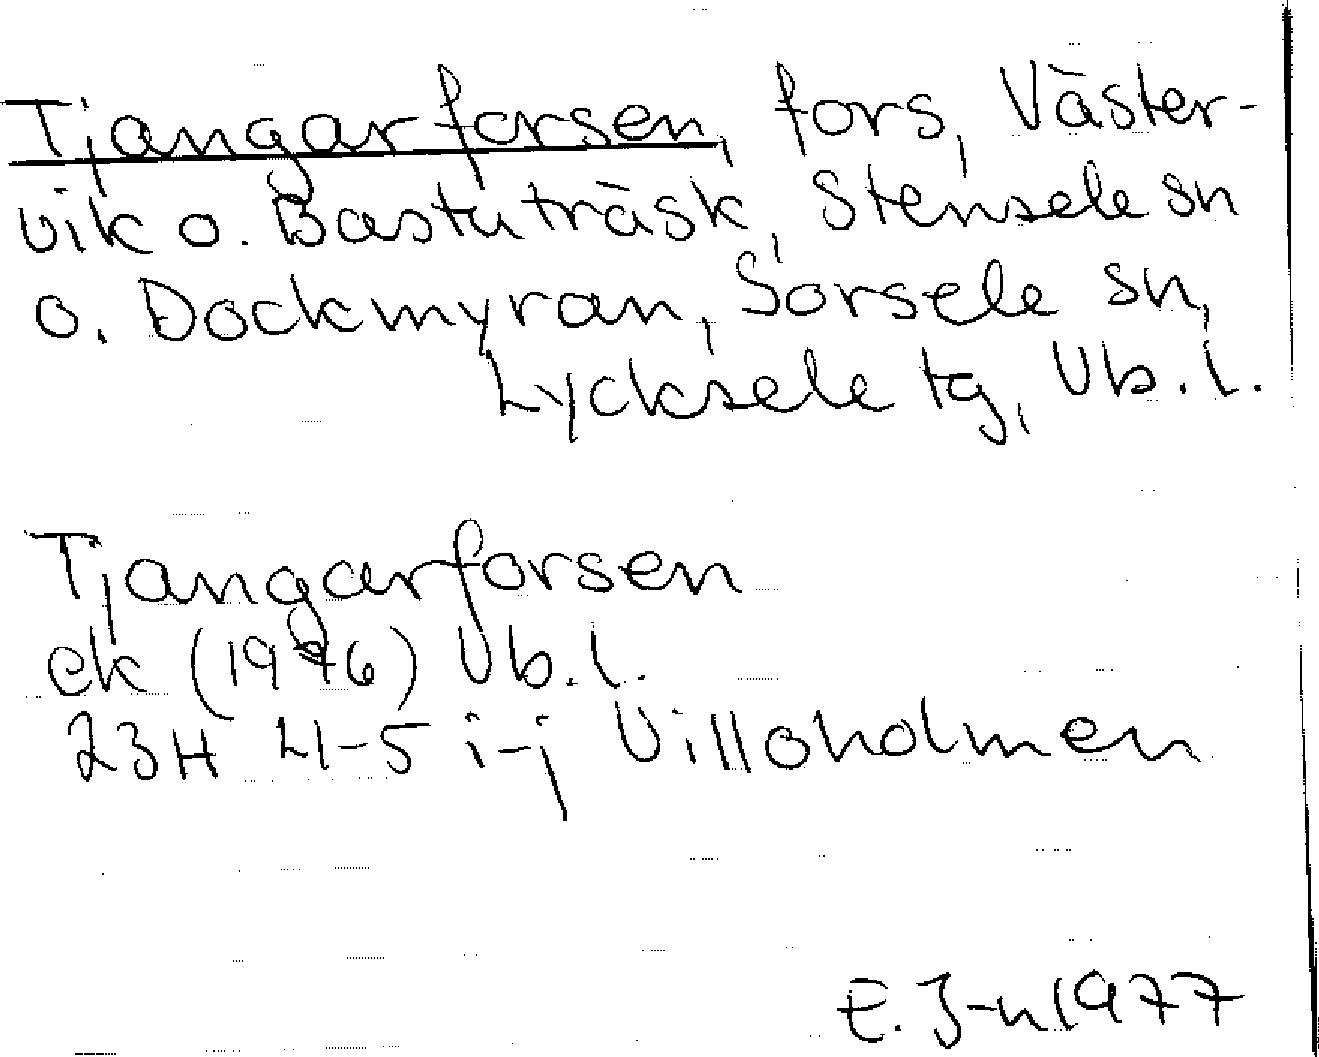 Tjangarforsen, fors, Väster-
vik o. Bastuträsk, Stensele sn
o. Dockmyran, Sorsele sn,
Lycksele tg, Vb. l.
Tjangarforsen
ek (1976) Vb. l.
23H 4-5 i-j Villoholmen
E. J-n 1977